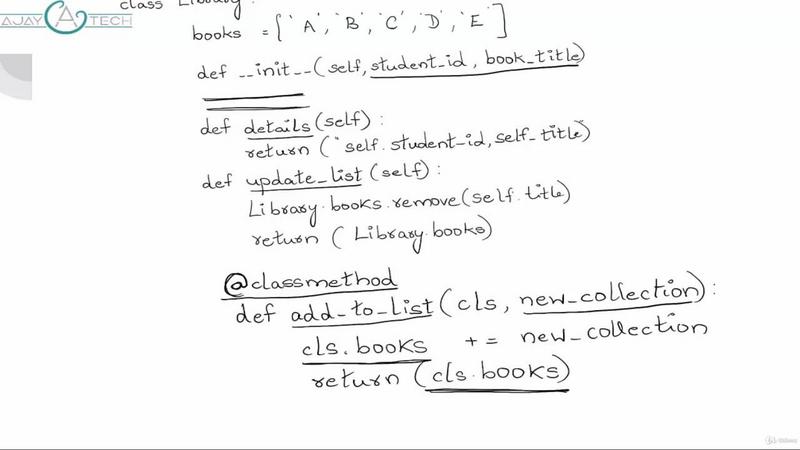 AJAY TECH
class Library:
books = ['A', 'B', 'C', 'D', 'E']
def __init__(self, student_id, book_title)
def details(self):
return ("self.student_id, self_title)
def update_list(self):
Library.books.remove(self.title)
return (Library.books)
@classmethod
def add_to_list(cls, new_collection):
cls.books += new_collection
return (cls.books)